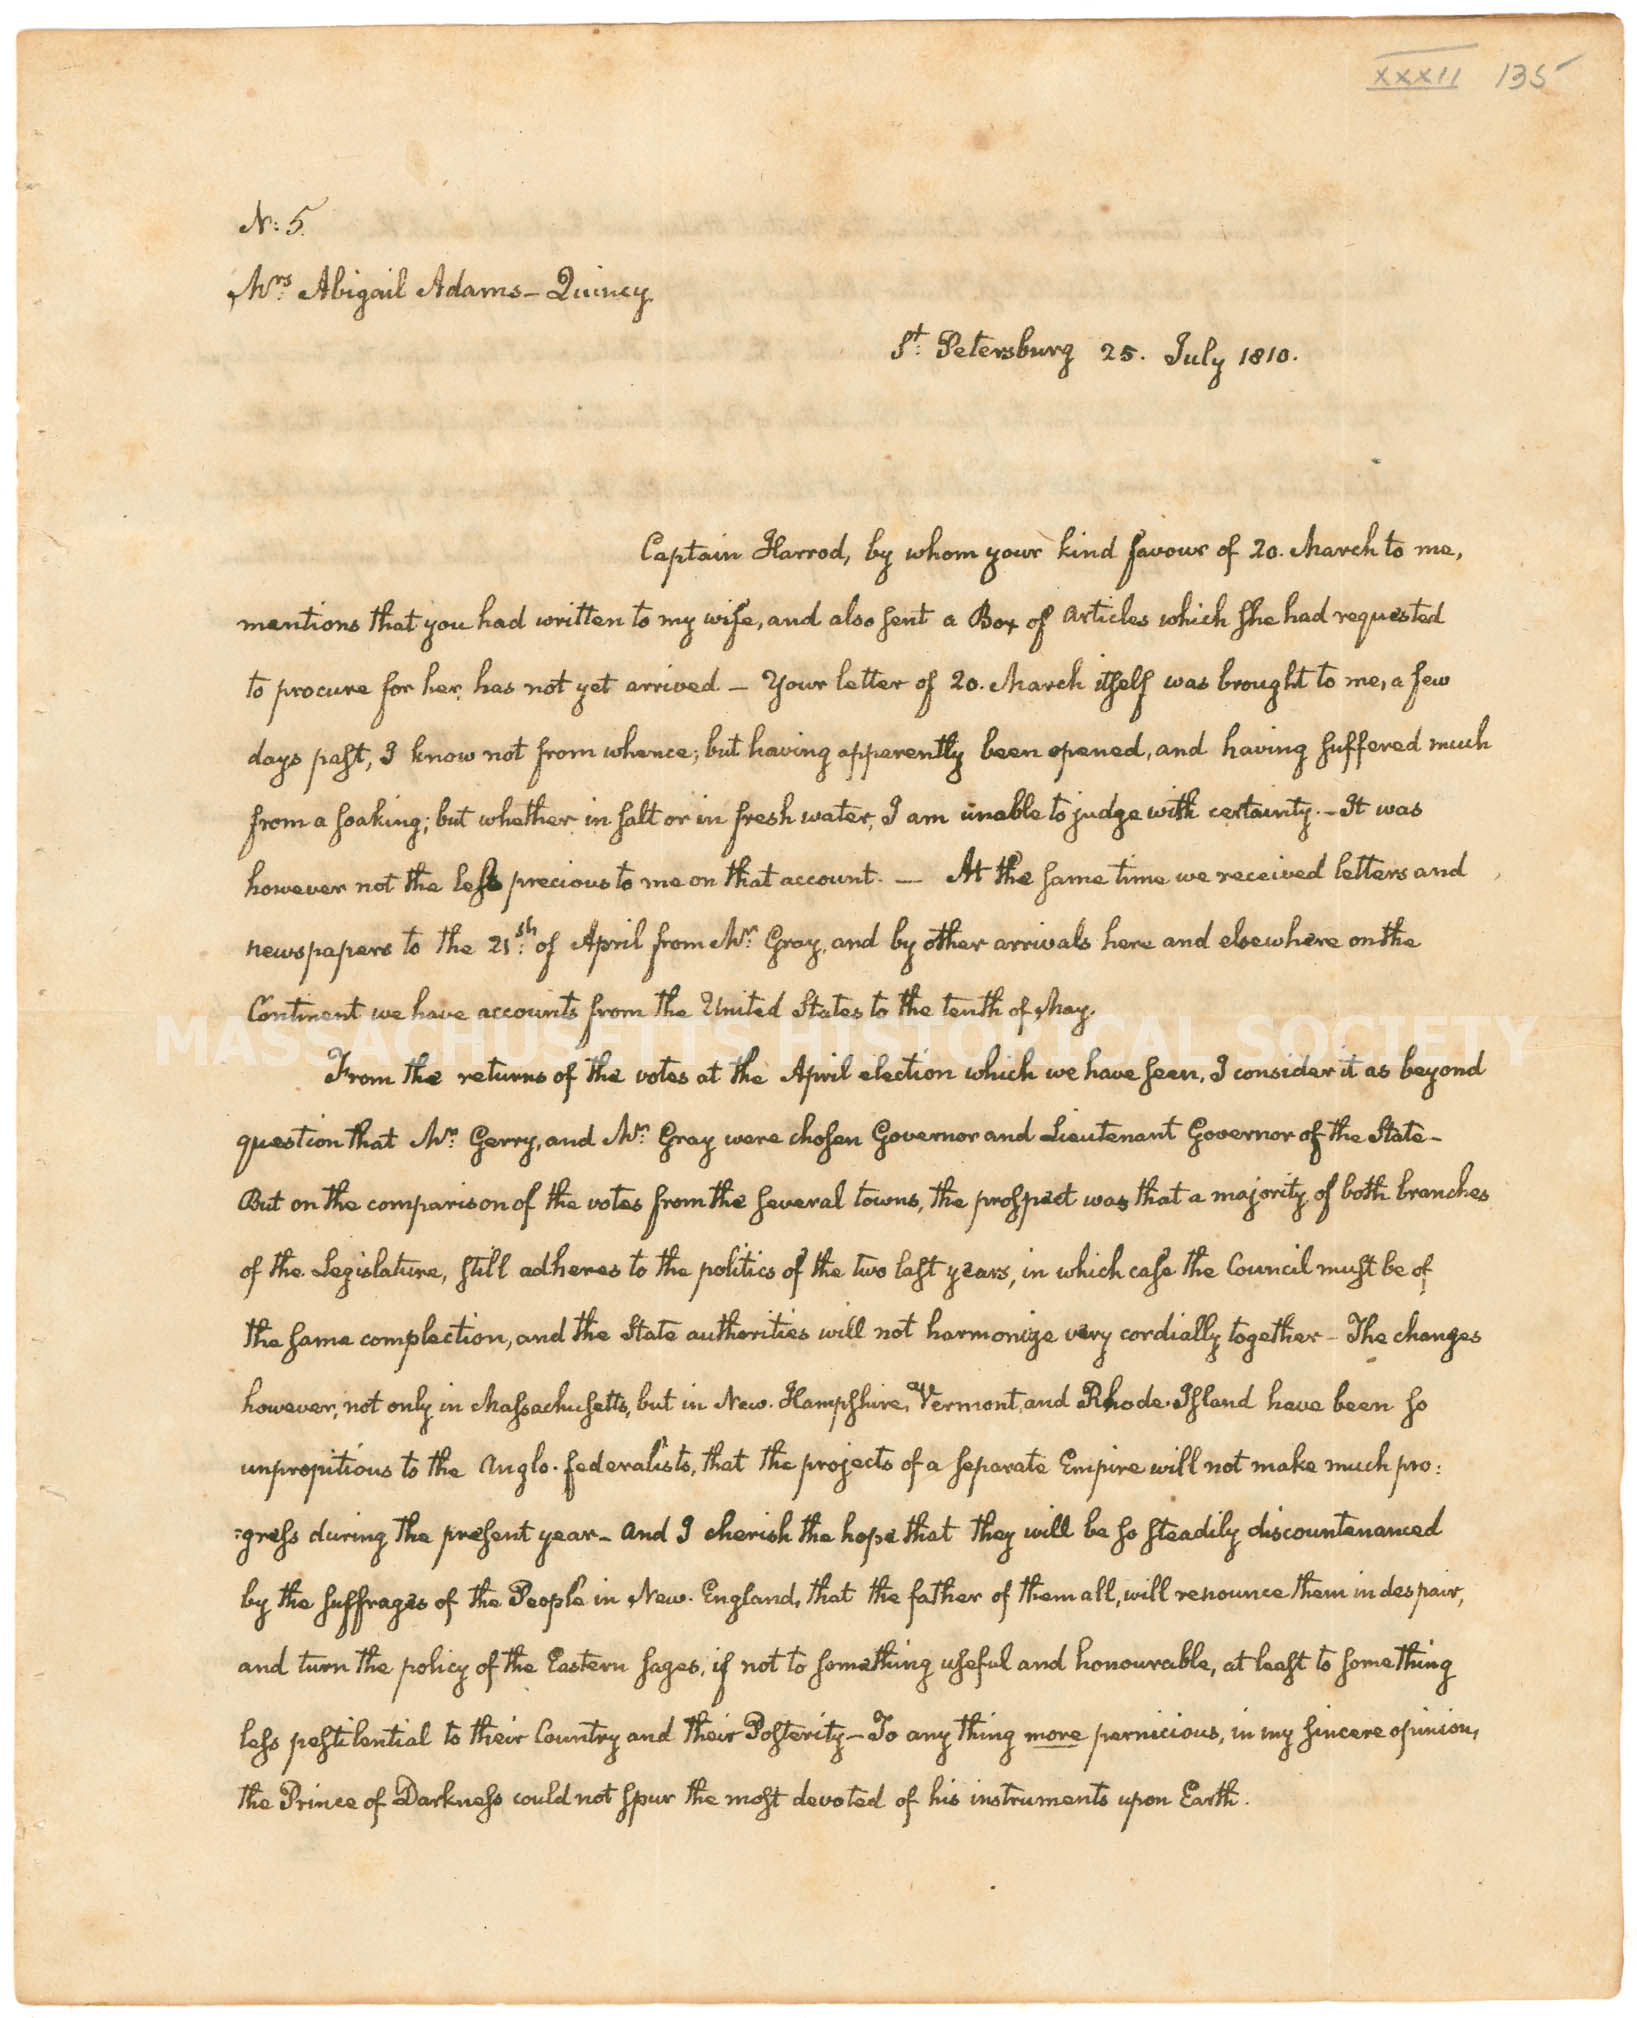 XXXII 135
N: 5.
Mrs: Abigail Adams - Quincy.
St: Petersburg 25. July 1810.
Captain Harrod, by whom your kind favour of 20. March to me,
mentions that you had written to my wife, and also sent a Box of articles which she had requested
to procure for her, has not yet arrived — Your letter of 20. March itself was brought to me, a few
days past, I know not from whence; but having apparently been opened, and having suffered much
from a soaking; but whether in salt or in fresh water, I am unable to judge with certainty. - It was
however not the less precious to me on that account. — At the same time we received letters and
newspapers to the 21st: of April from Mr: Gray, and by other arrivals here and elsewhere on the
Continent we have accounts from the United States to the tenth of May.
MASSACHUSETTS HISTORICAL SOCIETY
From the returns of the votes at the April election which we have seen, I consider it as beyond
question that Mr: Gerry, and Mr: Gray were chosen Governor and Lieutenant Governor of the State -
But on the comparison of the votes from the several towns, the prospect was that a majority of both branches
of the Legislature, still adheres to the politics of the two last years, in which case the Council must be of
the same complection, and the State authorities will not harmonize very cordially together - The changes
however, not only in Massachusetts, but in New-Hampshire, Vermont, and Rhode-Island have been so
unpropitious to the Anglo-federalists, that the projects of a separate Empire will not make much pro:
:gress during the present year - and I cherish the hope that they will be so steadily discountenanced
by the suffrages of the People in New-England, that the father of them all, will renounce them in despair,
and turn the policy of the Eastern sages, if not to something useful and honourable, at least to something
less pestilential to their Country and their Posterity - To any thing more pernicious, in my sincere opinion,
the Prince of Darkness could not spur the most devoted of his instruments upon Earth.